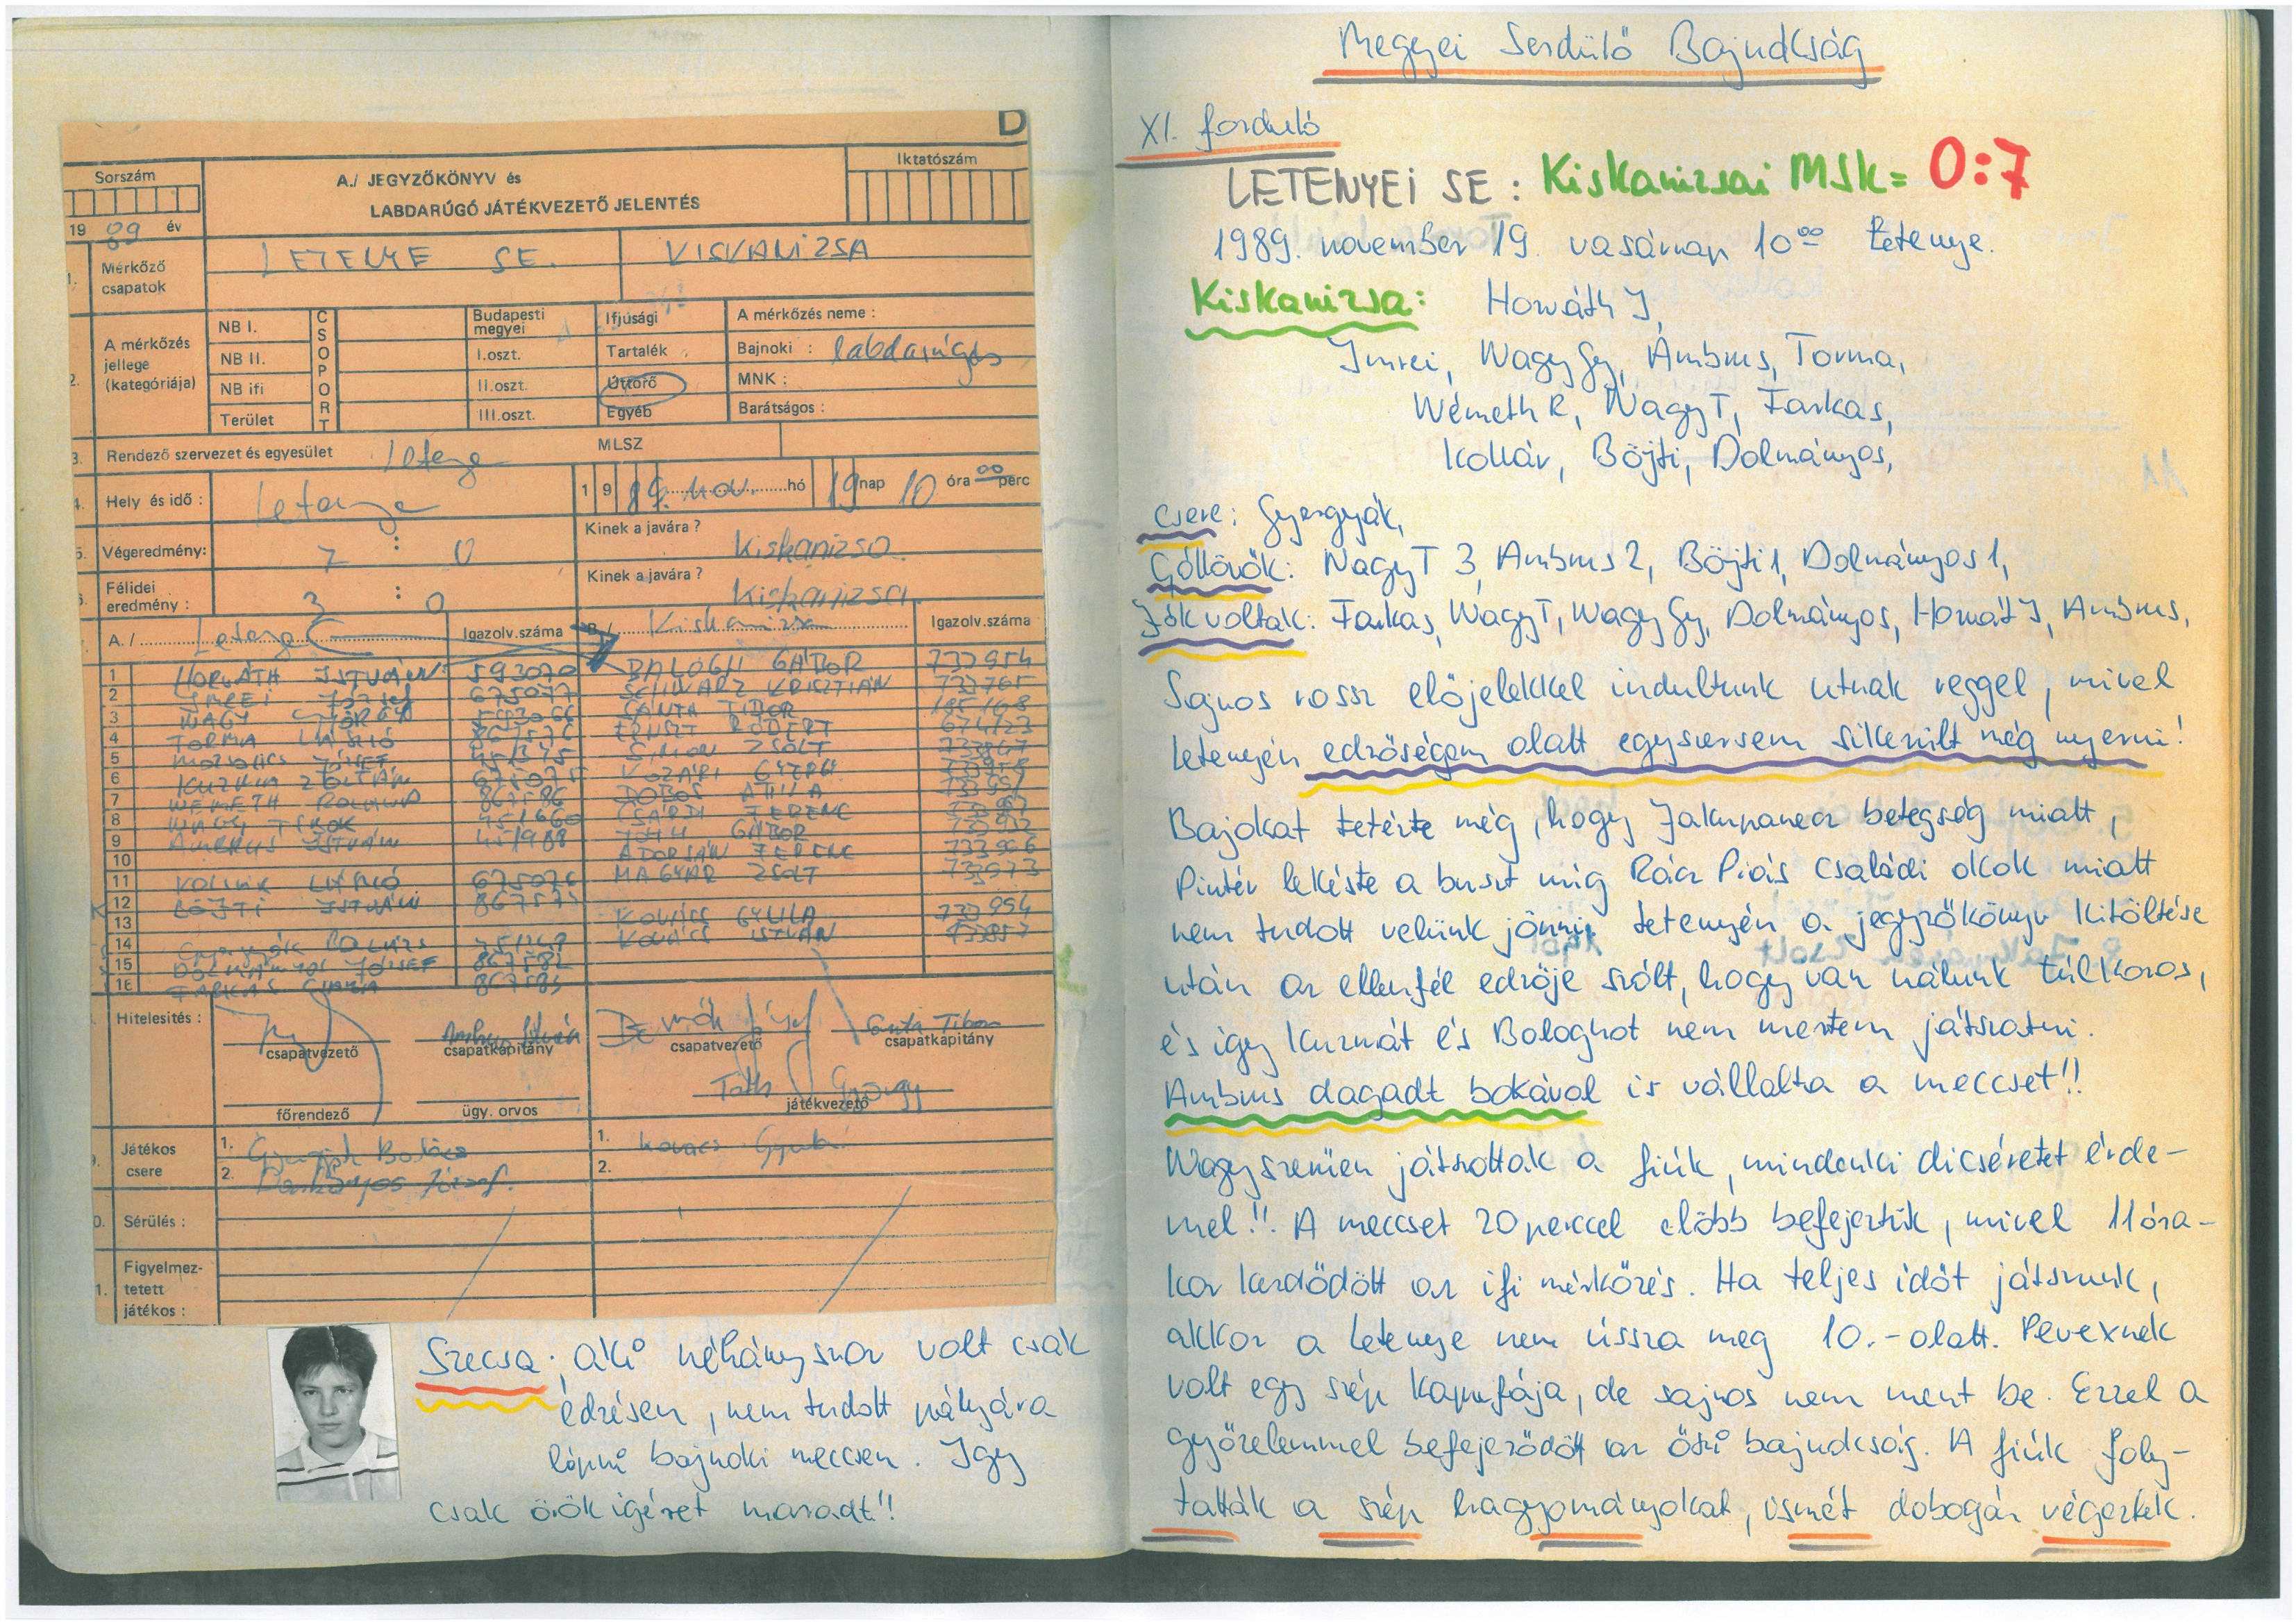 D
Sorszám
A./ JEGYZŐKÖNYV és
LABDARÚGÓ JÁTÉKVEZETŐ JELENTÉS
Iktatószám
19 89 év
1. Mérkőző csapatok
LETENYE SE.
KISKANIZSA
2. A mérkőzés jellege (kategóriája)
NB I.
NB II.
NB ifi
Terület
CSOPORT
Budapesti megyei
I.oszt.
II.oszt.
III.oszt.
Ifjúsági
Tartalék
Úttörő
Egyéb
A mérkőzés neme :
Bajnoki : labdarúgás
MNK :
Barátságos :
3. Rendező szervezet és egyesület Letenye MLSZ
4. Hely és idő : Letenye 19 89. nov. hó 19 nap 10 óra 00 perc
5. Végeredmény: 7 : 0 Kinek a javára ? Kiskanizsa
6. Félidei eredmény : 3 : 0 Kinek a javára ? Kiskanizsa
A./ Letenye Igazolv.száma B./ Kiskanizsa Igazolv.száma
1 HORVÁTH ISTVÁN 593070 BALOGH GÁBOR 733954
2 IMREI József 675077 SCHWARZ KRISZTIÁN 733765
3 NAGY GYÖRGY SÁNTA TIBOR
4 TORMA LÁSZLÓ ERNSZT RÓBERT 674123
5 SIMON ZSOLT
6 KUZMA ZOLTÁN 675075
7 NÉMETH ROLAND 867586 DOBOS ATTILA
8 NAGY 451660 CSÁRDI FERENC
9 AMBRUS ISTVÁN 451988 TÓTH GÁBOR
10 ADORJÁN FERENC 733906
11 KOLLÁR LÁSZLÓ 675076 MAGYAR ZSOLT 733973
12 BÖJTI ISTVÁN 867575
13 KOVÁCS GYULA 733954
14 Gyergyák Balázs KOVÁCS ISTVÁN
15 DOLMÁNYOS JÓZSEF 867582
16 FARKAS 867583
Hitelesités :
csapatvezető
Ambrus István
csapatkapitány
csapatvezető
Sánta Tibor
csapatkapitány
Tóth György
főrendező
ügy. orvos
játékvezető
Játékos csere
1. Gyergyák Balázs
2. Dolmányos József.
1. Kovács Gyula
2.
Sérülés :
Figyelmeztetett játékos :
Szecsa; aki néhányszor volt csak
edzésen, nem tudott pályára
lépni bajnoki meccsen. Igy
csak örök igéret maradt!!
Megyei Serdülő Bajnokság
XI. forduló
LETENYEI SE : Kiskanizsai MSK = 0:7
1989. november 19. vasárnap 10⁰⁰ Letenye.
Kiskanizsa: Horváth I,
Imrei, Nagy Gy, Ambrus, Torma,
Németh R, Nagy T, Farkas,
Kollár, Böjti, Dolmányos,
csere: Gyergyák,
Góllövők: Nagy T 3, Ambrus 2, Böjti 1, Dolmányos 1,
Jók voltak: Farkas, Nagy T, Nagy Gy, Dolmányos, Horvát I, Ambrus,
Sajnos rossz előjelekkel indultunk utnak reggel, mivel
Letenyén edzőségem alatt egyszersem sikerült még nyerni!
Bajokat tetézte még, hogy Jakupanecz betegség miatt,
Pintér lekéste a buszt mig Rácz Piás családi okok miatt
nem tudott velünk jönni. Letenyén a jegyzőkönyv kitöltése
után az ellenfél edzője szólt, hogy van nálunk túlkoros,
és igy Kuzmát és Bologhot nem mertem játszatni.
Ambrus dagadt bokával is vállalta a meccset!!
Nagyszerüen játszottak a fiúk, mindenki dicséretet érde-
mel!! A meccset 20 perccel előbb befejeztük, mivel 11 óra-
kor kezdődött az ifi mérkőzés. Ha teljes időt játszunk,
akkor a Letenye nem ússza meg 10.-alatt. Pevexnek
volt egy szép kapufája, de sajnos nem ment be. Ezzel a
győzelemmel befejeződött az őszi bajnokság. A fiúk foly-
tatták a szép hagyományokat, ismét dobogán végeztek.